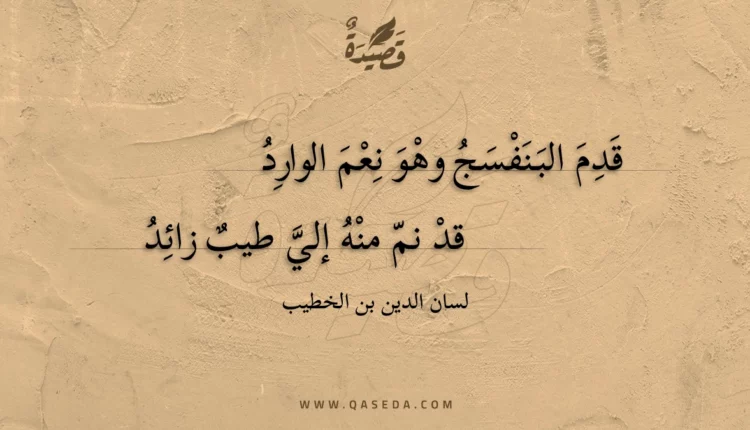 قَصِيْدَةٌ
قَدِمَ البَنَفْسَجُ وهْوَ نِعْمَ الوارِدُ
قدْ نمّ منْهُ إليَّ طيبٌ زائِدُ
لسان الدين بن الخطيب
WWW.QASEDA.COM